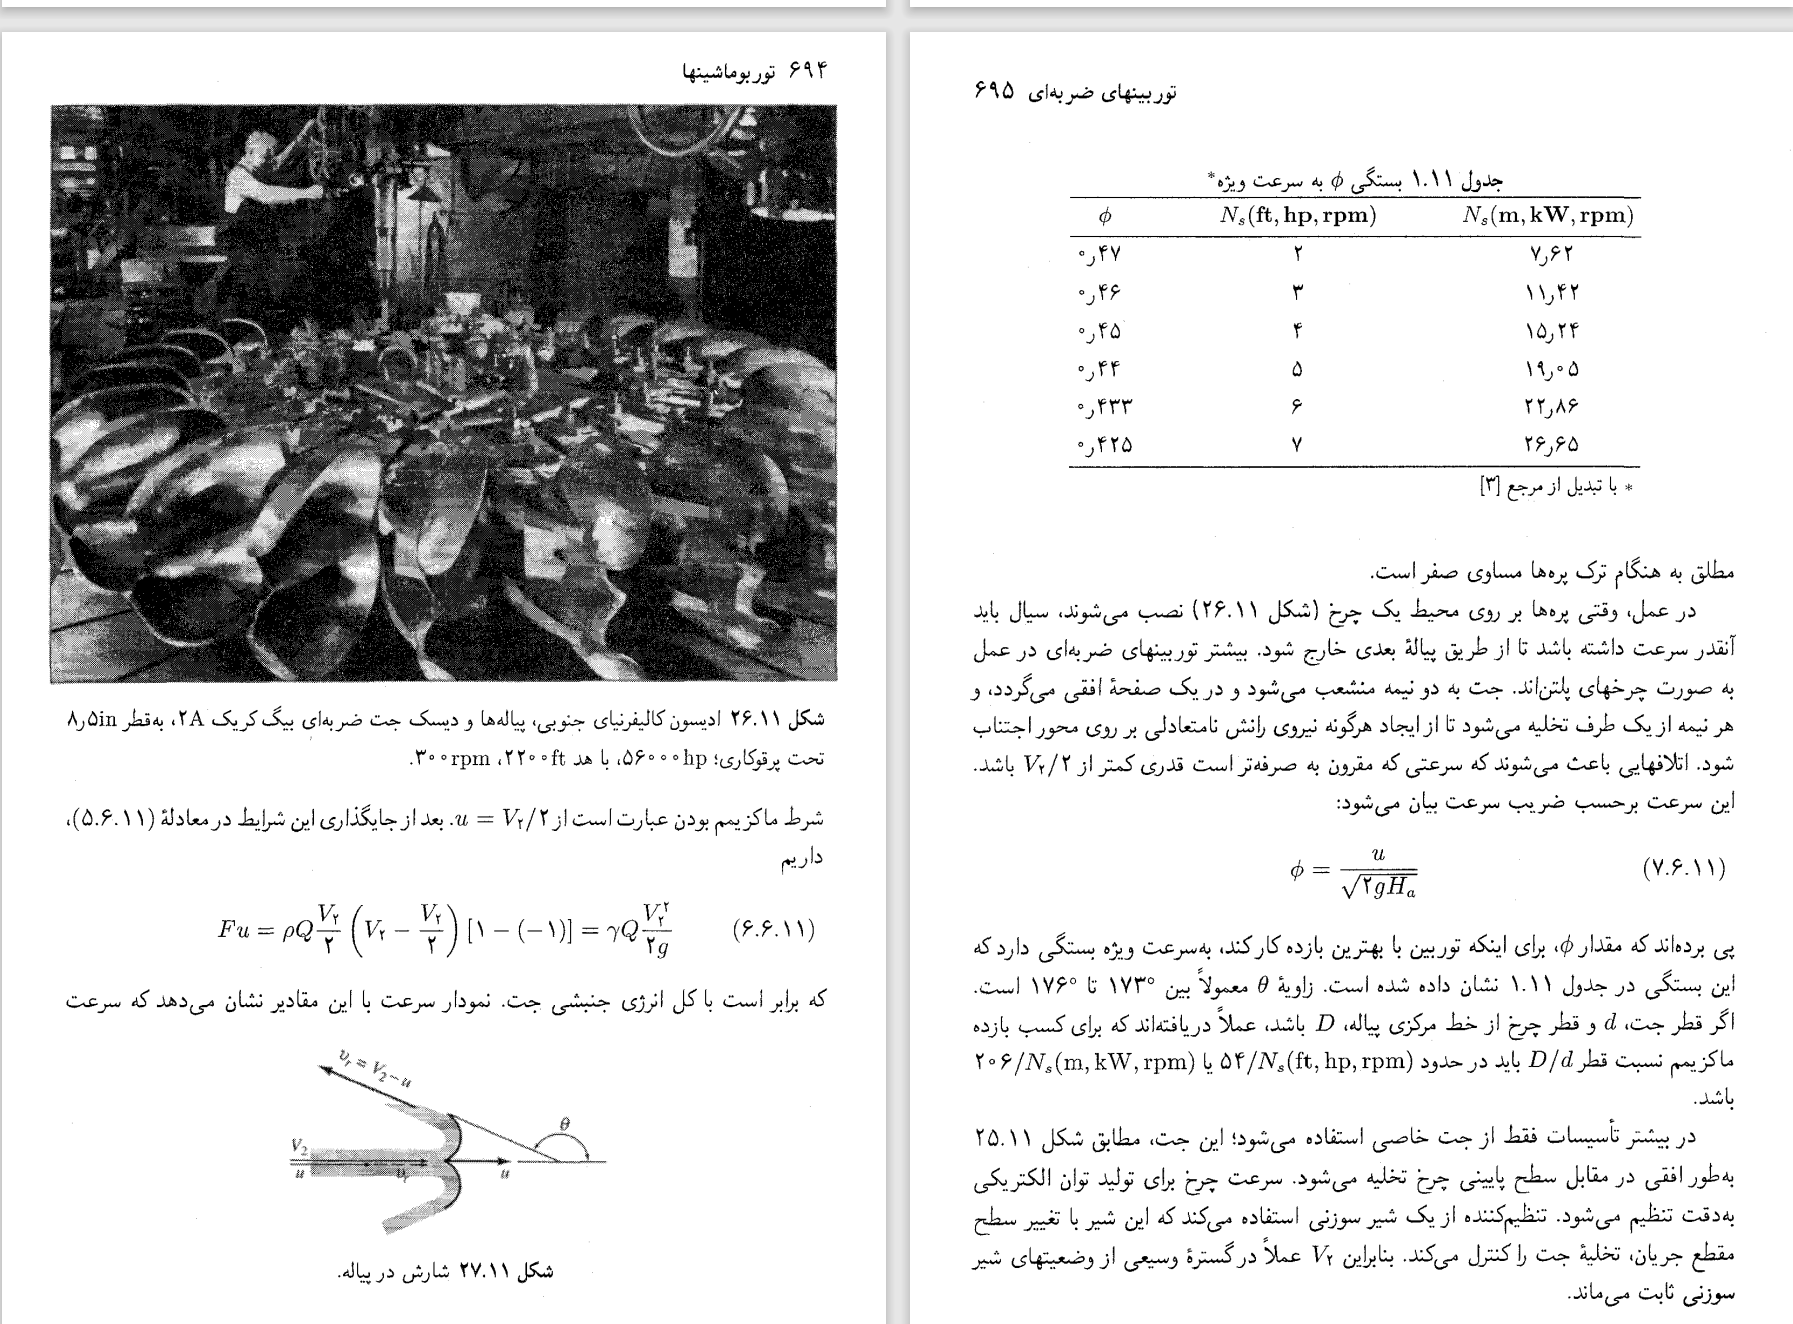 ۶۹۴ توربوماشینها
شکل ۲۶.۱۱ ادیسون کالیفرنیای جنوبی، پیاله‌ها و دیسک جت ضربه‌ای بیگ کریک ۲A، به‌قطر ۸٫۵in
تحت پرقوکاری؛ ۵۶۰۰۰hp، با هد ۲۲۰۰ft، ۳۰۰rpm.
شرط ماکزیمم بودن عبارت است از u = V₂/۲. بعد از جایگذاری این شرایط در معادلهٔ (۵.۶.۱۱)،
داریم
Fu = ρQ V₂/۲ (V₂ − V₂/۲) [۱ − (−۱)] = γQ V₂²/۲g (۶.۶.۱۱)
که برابر است با کل انرژی جنبشی جت. نمودار سرعت با این مقادیر نشان می‌دهد که سرعت
υᵣ = V₂−u
θ
V₂
u υᵣ u
شکل ۲۷.۱۱ شارش در پیاله.
توربینهای ضربه‌ای ۶۹۵
جدول ۱.۱۱ بستگی ϕ به سرعت ویژه*
ϕ Nₛ(ft, hp, rpm) Nₛ(m, kW, rpm)
۰٫۴۷ ۲ ۷٫۶۲
۰٫۴۶ ۳ ۱۱٫۴۲
۰٫۴۵ ۴ ۱۵٫۲۴
۰٫۴۴ ۵ ۱۹٫۰۵
۰٫۴۳۳ ۶ ۲۲٫۸۶
۰٫۴۲۵ ۷ ۲۶٫۶۵
* با تبدیل از مرجع [۳]
مطلق به هنگام ترک پره‌ها مساوی صفر است.
در عمل، وقتی پره‌ها بر روی محیط یک چرخ (شکل ۲۶.۱۱) نصب می‌شوند، سیال باید
آنقدر سرعت داشته باشد تا از طریق پیالهٔ بعدی خارج شود. بیشتر توربینهای ضربه‌ای در عمل
به صورت چرخهای پلتن‌اند. جت به دو نیمه منشعب می‌شود و در یک صفحهٔ افقی می‌گردد، و
هر نیمه از یک طرف تخلیه می‌شود تا از ایجاد هرگونه نیروی رانش نامتعادلی بر روی محور اجتناب
شود. اتلافهایی باعث می‌شوند که سرعتی که مقرون به صرفه‌تر است قدری کمتر از V₂/۲ باشد.
این سرعت برحسب ضریب سرعت بیان می‌شود:
ϕ = u/√۲gHₐ (۷.۶.۱۱)
پی برده‌اند که مقدار ϕ، برای اینکه توربین با بهترین بازده کار کند، به‌سرعت ویژه بستگی دارد که
این بستگی در جدول ۱.۱۱ نشان داده شده است. زاویهٔ θ معمولاً بین ۱۷۳° تا ۱۷۶° است.
اگر قطر جت، d و قطر چرخ از خط مرکزی پیاله، D باشد، عملاً دریافته‌اند که برای کسب بازده
ماکزیمم نسبت قطر D/d باید در حدود ۵۴/Nₛ(ft, hp, rpm) یا ۲۰۶/Nₛ(m, kW, rpm)
باشد.
در بیشتر تأسیسات فقط از جت خاصی استفاده می‌شود؛ این جت، مطابق شکل ۲۵.۱۱
به‌طور افقی در مقابل سطح پایینی چرخ تخلیه می‌شود. سرعت چرخ برای تولید توان الکتریکی
به‌دقت تنظیم می‌شود. تنظیم‌کننده از یک شیر سوزنی استفاده می‌کند که این شیر با تغییر سطح
مقطع جریان، تخلیهٔ جت را کنترل می‌کند. بنابراین V₂ عملاً در گسترهٔ وسیعی از وضعیتهای شیر
سوزنی ثابت می‌ماند.